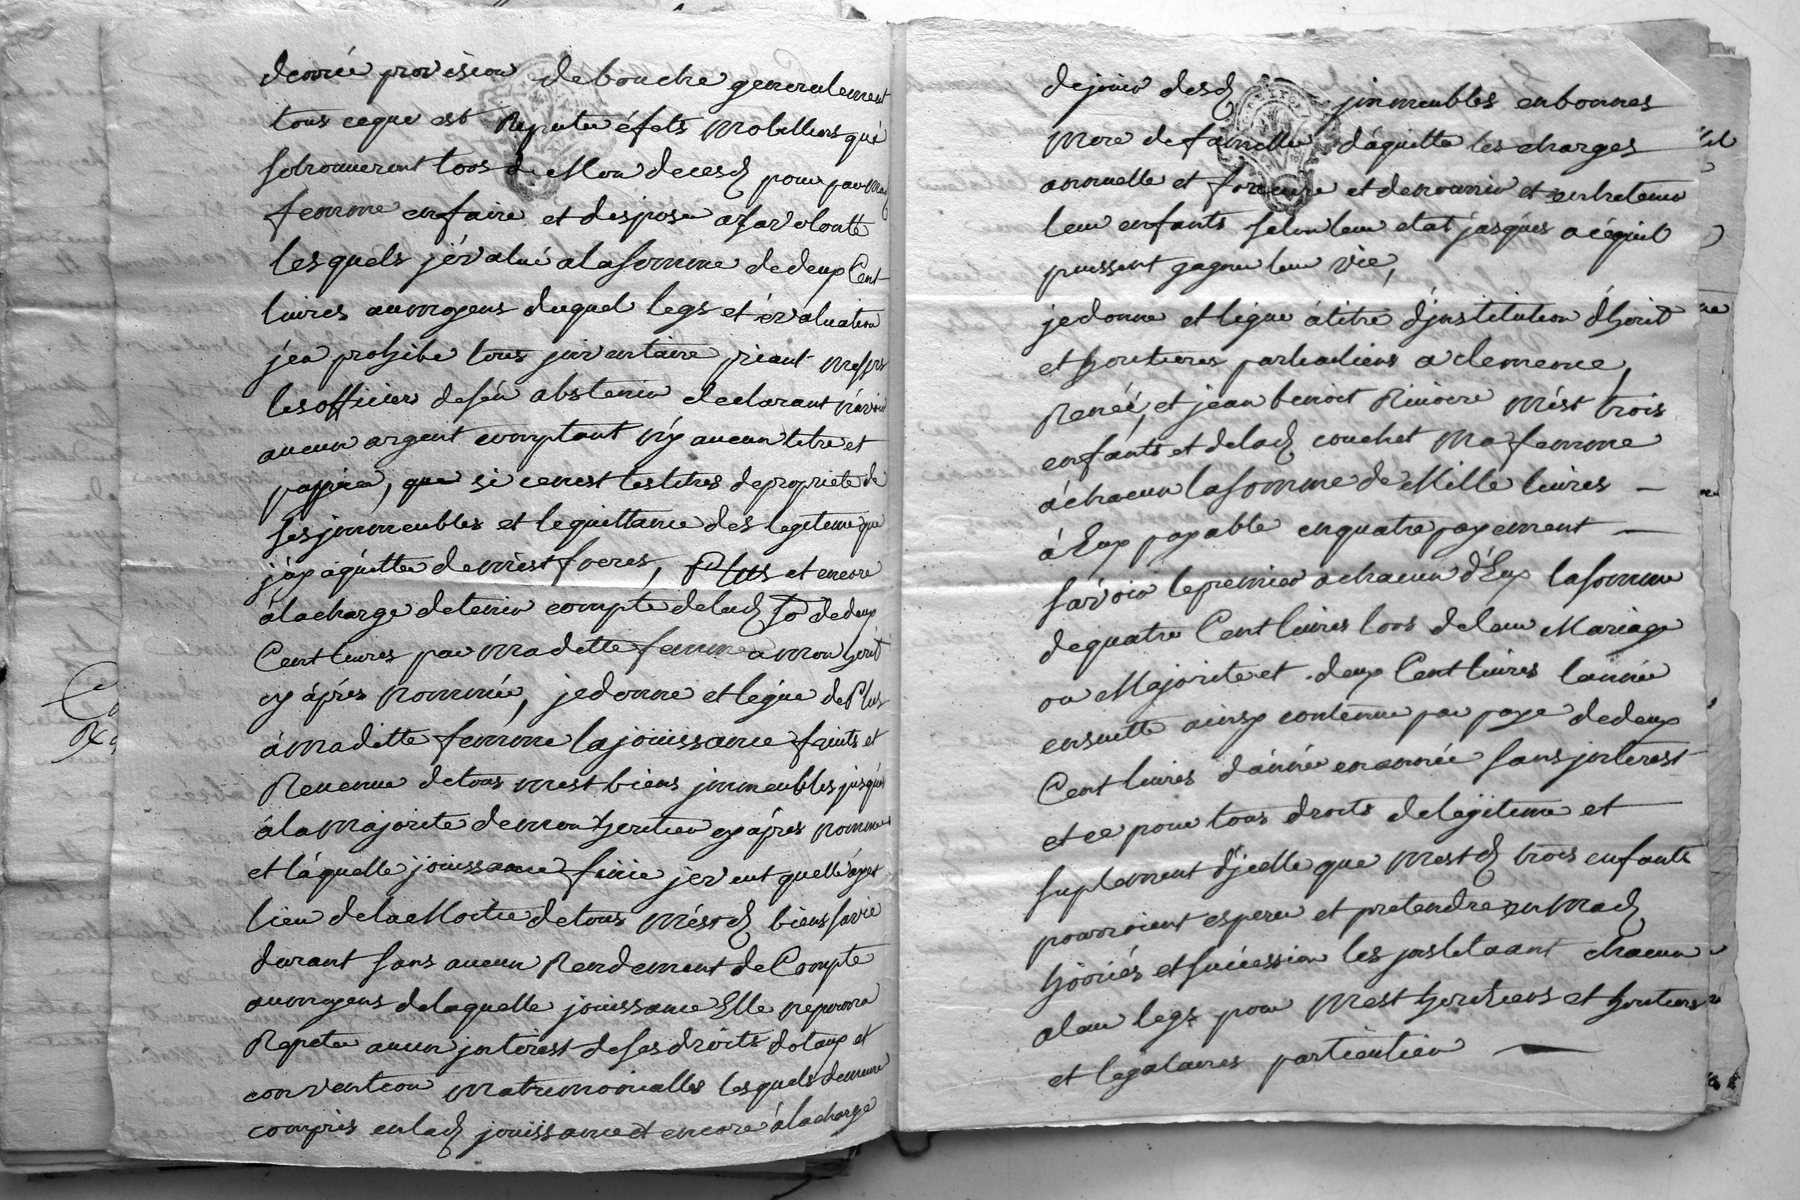 denrée provision de bouche generalement
tous ceque est Reputer éfets Mobilliers qui
se trouveront lors de Mon decesd pour par mad
femme enfaire et desposer a sa volonte
lesquels j'évalué ala somme de deux Cent
livres aumoyens duquel legs et évaluation
j'en prohibe tous jnventaire priant Messrs
les officiers de s'en abstenir declarant n'avoir
aucun argent comptant n'y aucun titre et
pappier, que si cenest les titres de propriete de
ses jmmeubles et le quittance des legitime que
j'ay aquitter de mest freres, Plus et encore
á la charge de tenir compte delad so de deux
Cent livres par madette femme a mon herit
cy áprés nommée, je donne et legue de Plus
á madette femme la joüissance fruits et
Revenue de tous mest biens jmmeubles jusqu'a
á la majorite de mon heritier cy áprés nommé
et láquelle joüissance finie je veut quelle áyet
lieu de la Moitie de tous mésd biens sa vie
durant sans aucun Rendement de Compte
aumoyens de laquelle joüissance Elle ne pourra
Repeter aucun jnterest de ses droits dotaux et
convention matrimonialles lesquels demeure
compris en lad joüissance et encore á la charge
de jouir desd jmmeubles en bonnes
Mere de famille d'aquitte les charges
annuelle et fonciere et de nourrir et entretenir
leur enfants selon leur etat jusqués a céquil
puissent gagner leur vie,
je donne et légue á titre d'jnstitution d'herit
et heritieres particuliers a clemence,
Renéé, et jean benoit Rivoire mést trois
enfánts et delad couchet ma femme
á chacun la somme de Mille livres —
á Eux payable en quatre payement —
sávoir le premier a chacun d'Eux la somme
de quatre Cent livres lors de leur Mariage
ou Majorite et deux Cent livres lannée
ensuitte ainsy contenue par paye de deux
Cent livres d'année en année sans jnterest
et ce pour tous droits de legitime et
suplement d'jcelle que mestd trois enfants
pourroient esperer et pretendre en mad
hoiriés et succession les jnstituant chacun
a leur legs pour mest heritiers et heritieres
et legataires particulier —